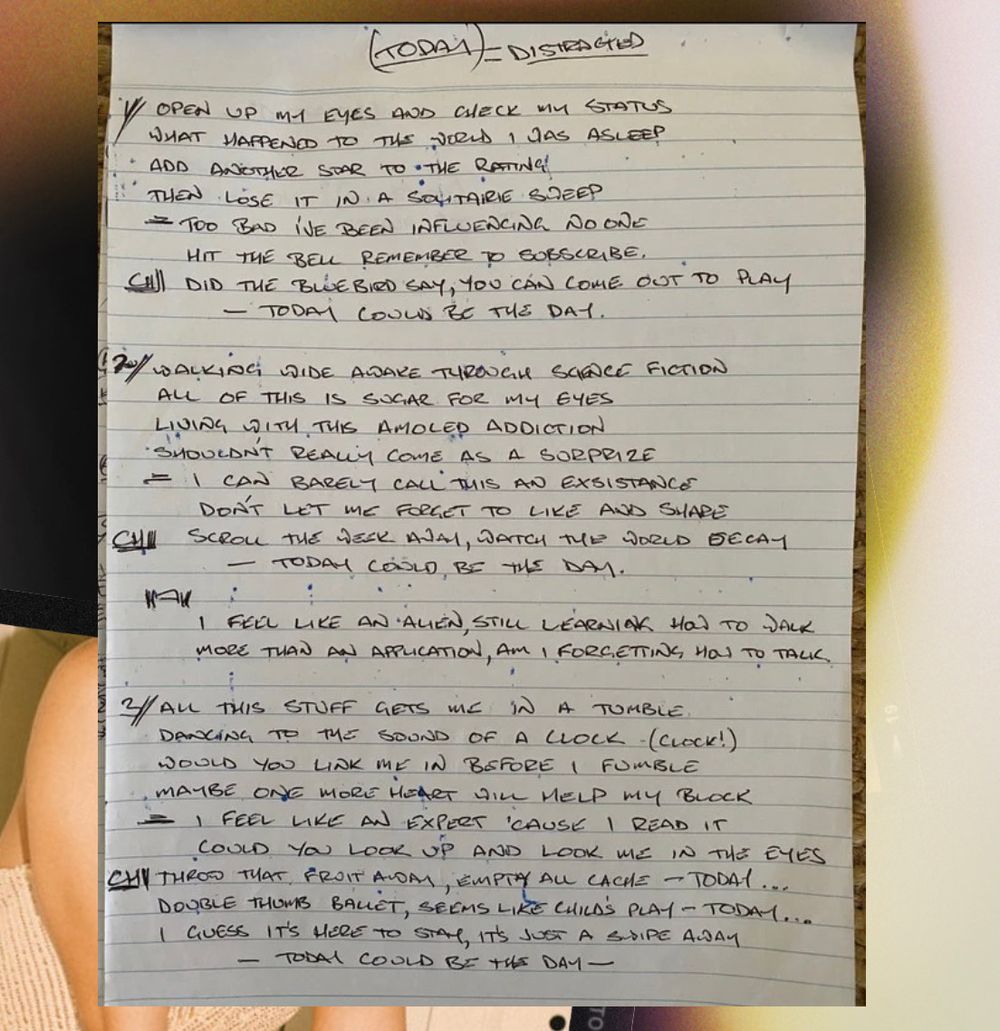 (TODAY) = DISTRACTED
1// OPEN UP MY EYES AND CHECK MY STATUS
WHAT HAPPENED TO THE WORLD I WAS ASLEEP
ADD ANOTHER STAR TO THE RATING
THEN LOSE IT IN A SOLITAIRIE SWEEP
= TOO BAD I'VE BEEN INFLUENCING NO ONE
HIT THE BELL REMEMBER TO SUBSCRIBE.
CH// DID THE BLUEBIRD SAY, YOU CAN COME OUT TO PLAY
— TODAY COULD BE THE DAY.
2// WALKING WIDE AWAKE THROUGH SCIENCE FICTION
ALL OF THIS IS SUGAR FOR MY EYES
LIVING WITH THIS AMOLED ADDICTION
SHOULDN'T REALLY COME AS A SURPRIZE
= I CAN BARELY CALL THIS AN EXSISTANCE
DON'T LET ME FORGET TO LIKE AND SHARE
CH// SCROLL THE WEEK AWAY, WATCH THE WORLD DECAY
— TODAY COULD BE THE DAY.
I FEEL LIKE AN ALIEN, STILL LEARNING HOW TO WALK
MORE THAN AN APPLICATION, AM I FORGETTING HOW TO TALK.
3// ALL THIS STUFF GETS ME IN A TUMBLE
DANCING TO THE SOUND OF A CLOCK (CLOCK!)
WOULD YOU LINK ME IN BEFORE I FUMBLE
MAYBE ONE MORE HEART WILL HELP MY BLOCK
= I FEEL LIKE AN EXPERT 'CAUSE I READ IT
COULD YOU LOOK UP AND LOOK ME IN THE EYES
CH// THROW THAT FRUIT AWAY, EMPTY ALL CACHE — TODAY...
DOUBLE THUMB BALLET, SEEMS LIKE CHILD'S PLAY — TODAY...
I GUESS IT'S HERE TO STAY, IT'S JUST A SWIPE AWAY
— TODAY COULD BE THE DAY —